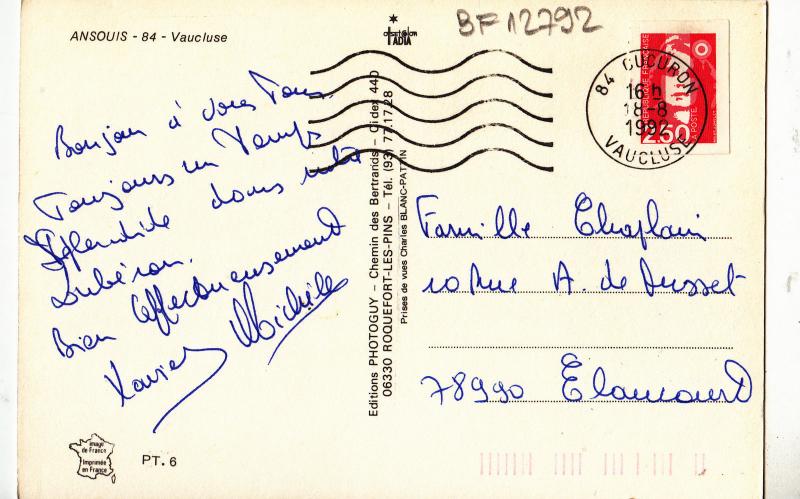 BF12792
ANSOUIS - 84 - Vaucluse
Bonjour à vous Tous
Toujours un Temps
Splendide dans notre
Lubéron.
Bien affectueusement
Xavier Michèle
image
de France
Imprimée
en France
PT. 6
Editions PHOTOGUY – Chemin des Bertrands – Cidex 440
06330 ROQUEFORT-LES-PINS – Tél. (93) 77.17.28
Prises de vues Charles BLANC-PATTIN
84 CUCURON
16 h
18-8
1992
VAUCLUSE
REPUBLIQUE FRANÇAISE
2,50
LA POSTE
Famille Chaplain
10 Rue A. de Musset
78990 Elancourt